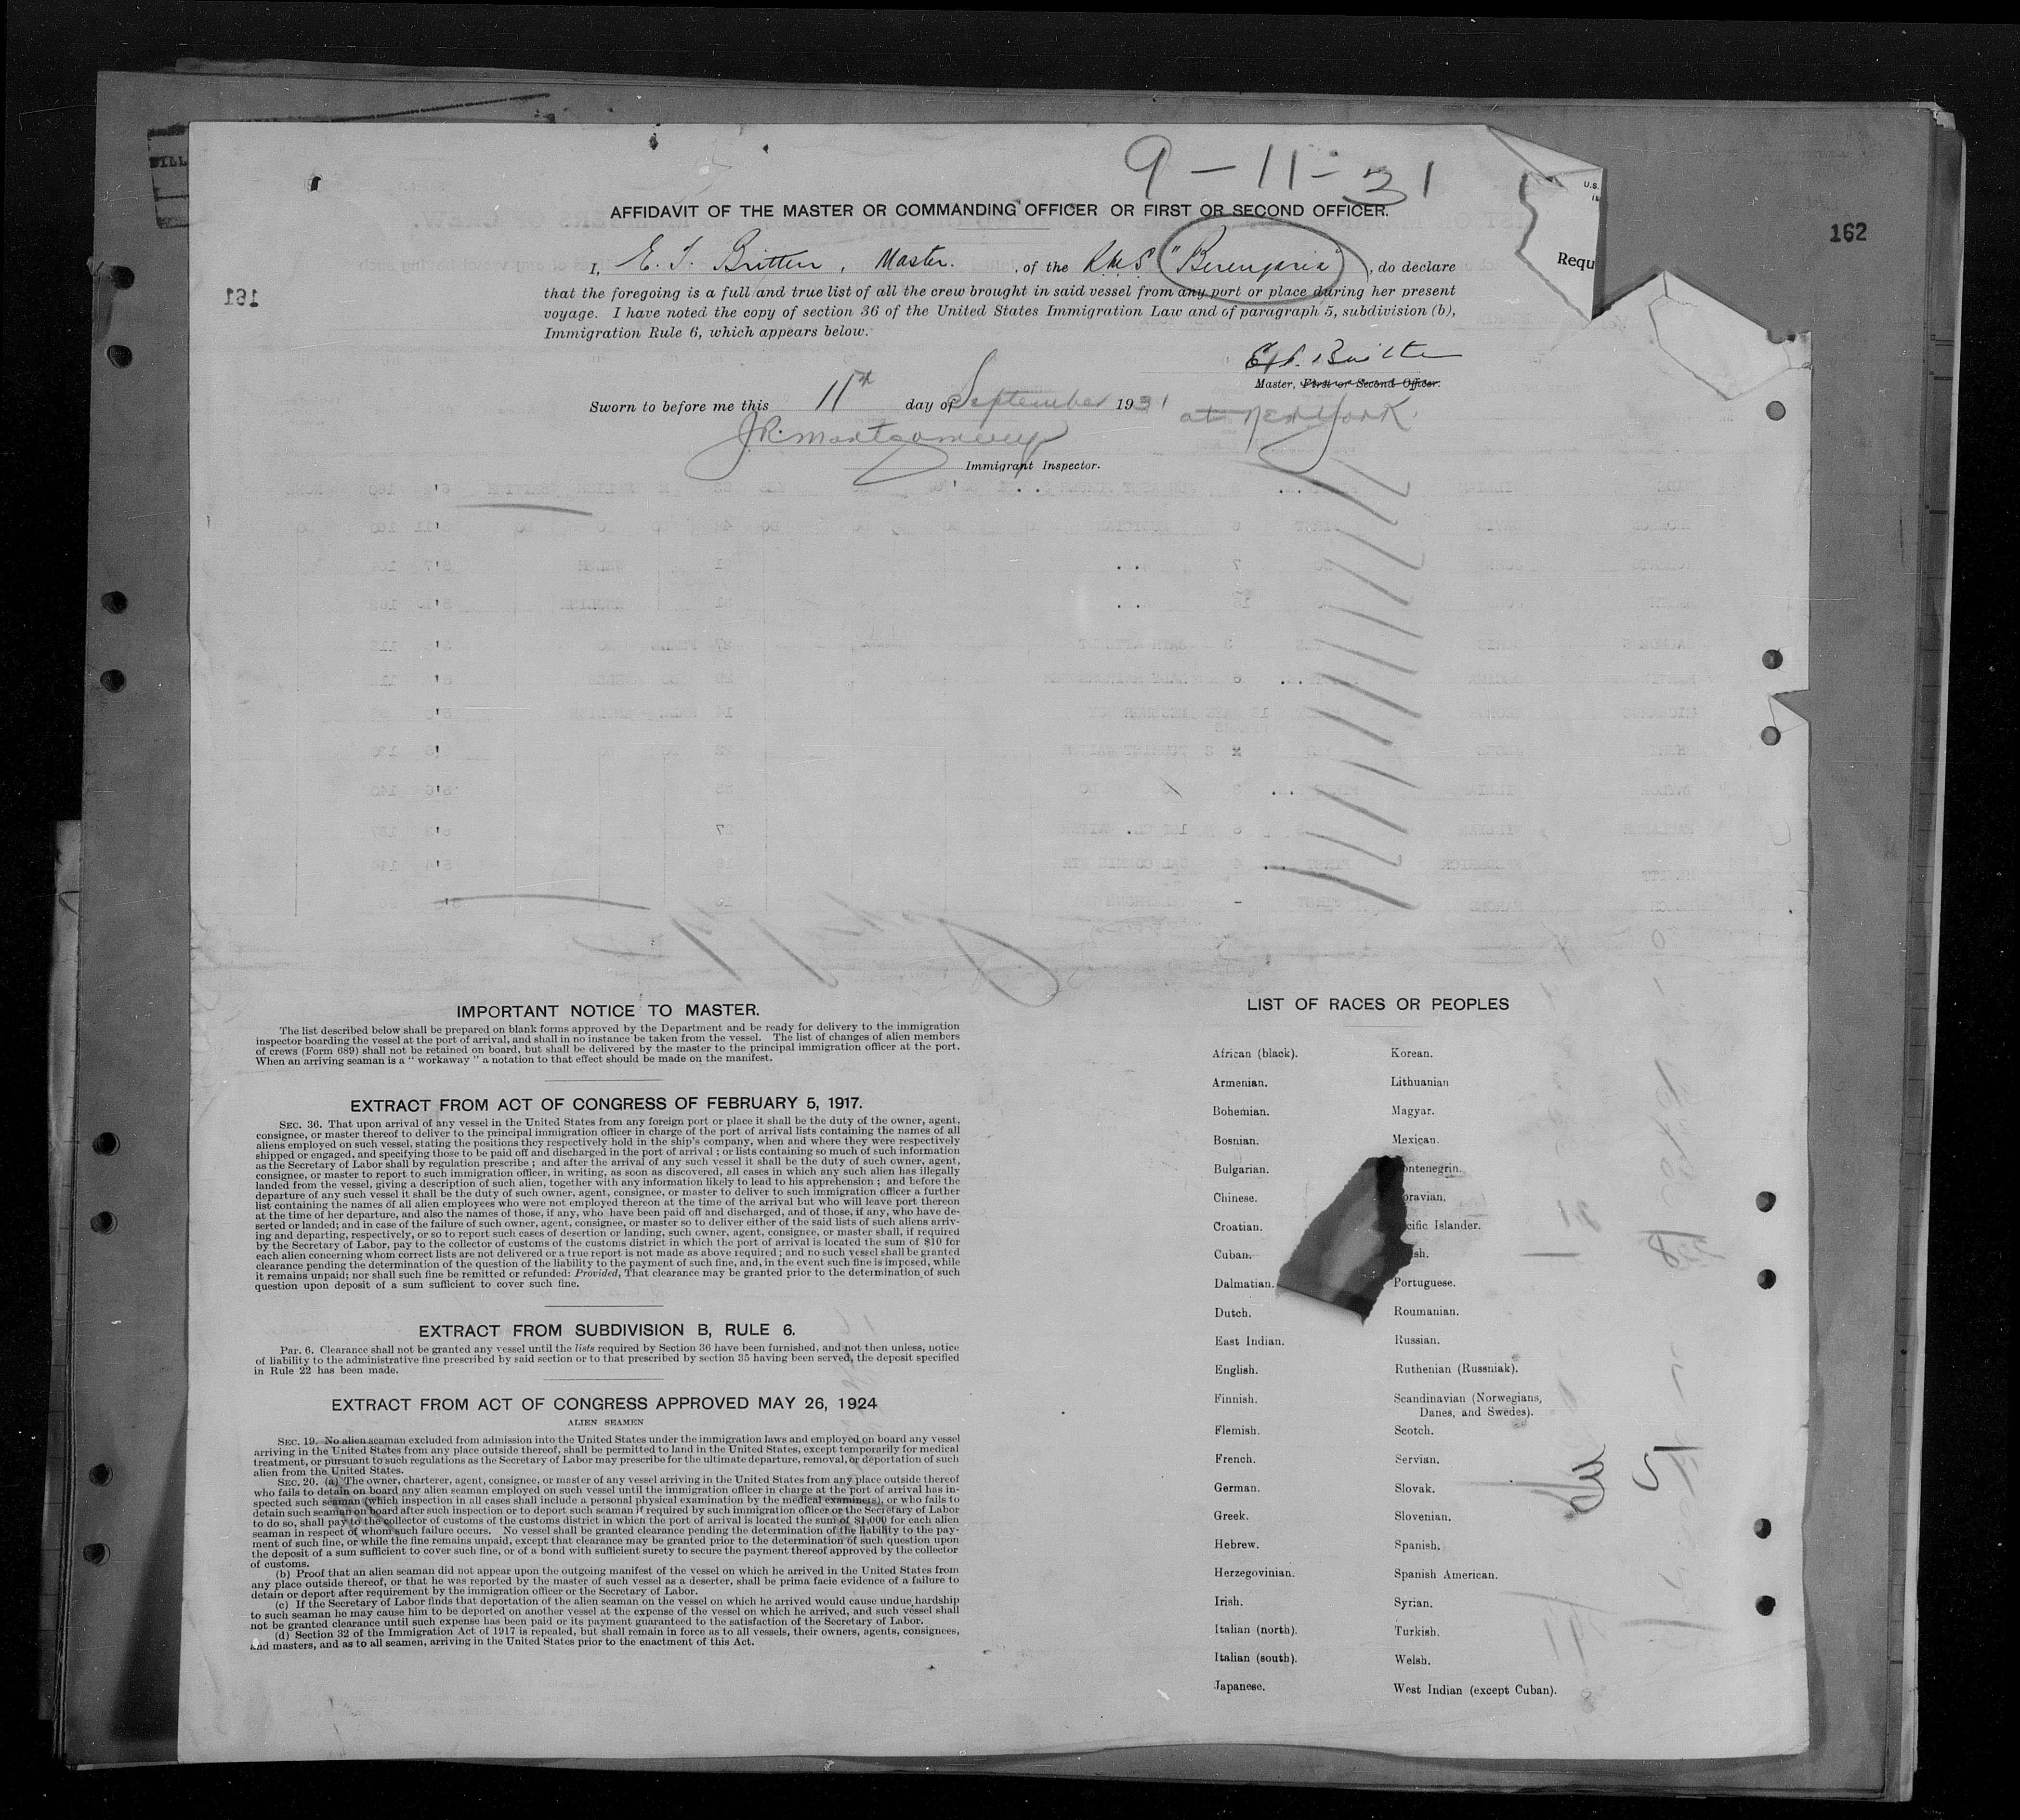 9-11-31
AFFIDAVIT OF THE MASTER OR COMMANDING OFFICER OR FIRST OR SECOND OFFICER.
162
161
U.S.
Requ
I, E. T. Britten, Master. , of the R.M.S. "Berengaria", do declare
that the foregoing is a full and true list of all the crew brought in said vessel from any port or place during her present
voyage. I have noted the copy of section 36 of the United States Immigration Law and of paragraph 5, subdivision (b),
Immigration Rule 6, which appears below.
Master, First or Second Officer.
Sworn to before me this 11th day of September 1931 at New York.
J.R. Montgomery
Immigrant Inspector.
IMPORTANT NOTICE TO MASTER.
The list described below shall be prepared on blank forms approved by the Department and be ready for delivery to the immigration
inspector boarding the vessel at the port of arrival, and shall in no instance be taken from the vessel. The list of changes of alien members
of crews (Form 689) shall not be retained on board, but shall be delivered by the master to the principal immigration officer at the port.
When an arriving seaman is a " workaway " a notation to that effect should be made on the manifest.
EXTRACT FROM ACT OF CONGRESS OF FEBRUARY 5, 1917.
SEC. 36. That upon arrival of any vessel in the United States from any foreign port or place it shall be the duty of the owner, agent,
consignee, or master thereof to deliver to the principal immigration officer in charge of the port of arrival lists containing the names of all
aliens employed on such vessel, stating the positions they respectively hold in the ship's company, when and where they were respectively
shipped or engaged, and specifying those to be paid off and discharged in the port of arrival ; or lists containing so much of such information
as the Secretary of Labor shall by regulation prescribe ; and after the arrival of any such vessel it shall be the duty of such owner, agent,
consignee, or master to report to such immigration officer, in writing, as soon as discovered, all cases in which any such alien has illegally
landed from the vessel, giving a description of such alien, together with any information likely to lead to his apprehension ; and before the
departure of any such vessel it shall be the duty of such owner, agent, consignee, or master to deliver to such immigration officer a further
list containing the names of all alien employees who were not employed thereon at the time of the arrival but who will leave port thereon
at the time of her departure, and also the names of those, if any, who have been paid off and discharged, and of those, if any, who have de-
serted or landed; and in case of the failure of such owner, agent, consignee, or master so to deliver either of the said lists of such aliens arriv-
ing and departing, respectively, or so to report such cases of desertion or landing, such owner, agent, consignee, or master shall, if required
by the Secretary of Labor, pay to the collector of customs of the customs district in which the port of arrival is located the sum of $10 for
each alien concerning whom correct lists are not delivered or a true report is not made as above required ; and no such vessel shall be granted
clearance pending the determination of the question of the liability to the payment of such fine, and, in the event such fine is imposed, while
it remains unpaid; nor shall such fine be remitted or refunded: Provided, That clearance may be granted prior to the determination of such
question upon deposit of a sum sufficient to cover such fine.
EXTRACT FROM SUBDIVISION B, RULE 6.
Par. 6. Clearance shall not be granted any vessel until the lists required by Section 36 have been furnished, and not then unless, notice
of liability to the administrative fine prescribed by said section or to that prescribed by section 35 having been served, the deposit specified
in Rule 22 has been made.
EXTRACT FROM ACT OF CONGRESS APPROVED MAY 26, 1924
ALIEN SEAMEN
SEC. 19. No alien seaman excluded from admission into the United States under the immigration laws and employed on board any vessel
arriving in the United States from any place outside thereof, shall be permitted to land in the United States, except temporarily for medical
treatment, or pursuant to such regulations as the Secretary of Labor may prescribe for the ultimate departure, removal, or deportation of such
alien from the United States.
SEC. 20. (a) The owner, charterer, agent, consignee, or master of any vessel arriving in the United States from any place outside thereof
who fails to detain on board any alien seaman employed on such vessel until the immigration officer in charge at the port of arrival has in-
spected such seaman (which inspection in all cases shall include a personal physical examination by the medical examiners), or who fails to
detain such seaman on board after such inspection or to deport such seaman if required by such immigration officer or the Secretary of Labor
to do so, shall pay to the collector of customs of the customs district in which the port of arrival is located the sum of $1,000 for each alien
seaman in respect of whom such failure occurs. No vessel shall be granted clearance pending the determination of the liability to the pay-
ment of such fine, or while the fine remains unpaid, except that clearance may be granted prior to the determination of such question upon
the deposit of a sum sufficient to cover such fine, or of a bond with sufficient surety to secure the payment thereof approved by the collector
of customs.
(b) Proof that an alien seaman did not appear upon the outgoing manifest of the vessel on which he arrived in the United States from
any place outside thereof, or that he was reported by the master of such vessel as a deserter, shall be prima facie evidence of a failure to
detain or deport after requirement by the immigration officer or the Secretary of Labor.
(c) If the Secretary of Labor finds that deportation of the alien seaman on the vessel on which he arrived would cause undue hardship
to such seaman he may cause him to be deported on another vessel at the expense of the vessel on which he arrived, and such vessel shall
not be granted clearance until such expense has been paid or its payment guaranteed to the satisfaction of the Secretary of Labor.
(d) Section 32 of the Immigration Act of 1917 is repealed, but shall remain in force as to all vessels, their owners, agents, consignees,
and masters, and as to all seamen, arriving in the United States prior to the enactment of this Act.
LIST OF RACES OR PEOPLES
African (black).
Armenian.
Bohemian.
Bosnian.
Bulgarian.
Chinese.
Croatian.
Cuban.
Dalmatian.
Dutch.
East Indian.
English.
Finnish.
Flemish.
French.
German.
Greek.
Hebrew.
Herzegovinian.
Irish.
Italian (north).
Italian (south).
Japanese.
Korean.
Lithuanian
Magyar.
Mexican.
ontenegrin.
oravian.
cific Islander.
sh.
Portuguese.
Roumanian.
Russian.
Ruthenian (Russniak).
Scandinavian (Norwegians,
Danes, and Swedes).
Scotch.
Servian.
Slovak.
Slovenian.
Spanish.
Spanish American.
Syrian.
Turkish.
Welsh.
West Indian (except Cuban).